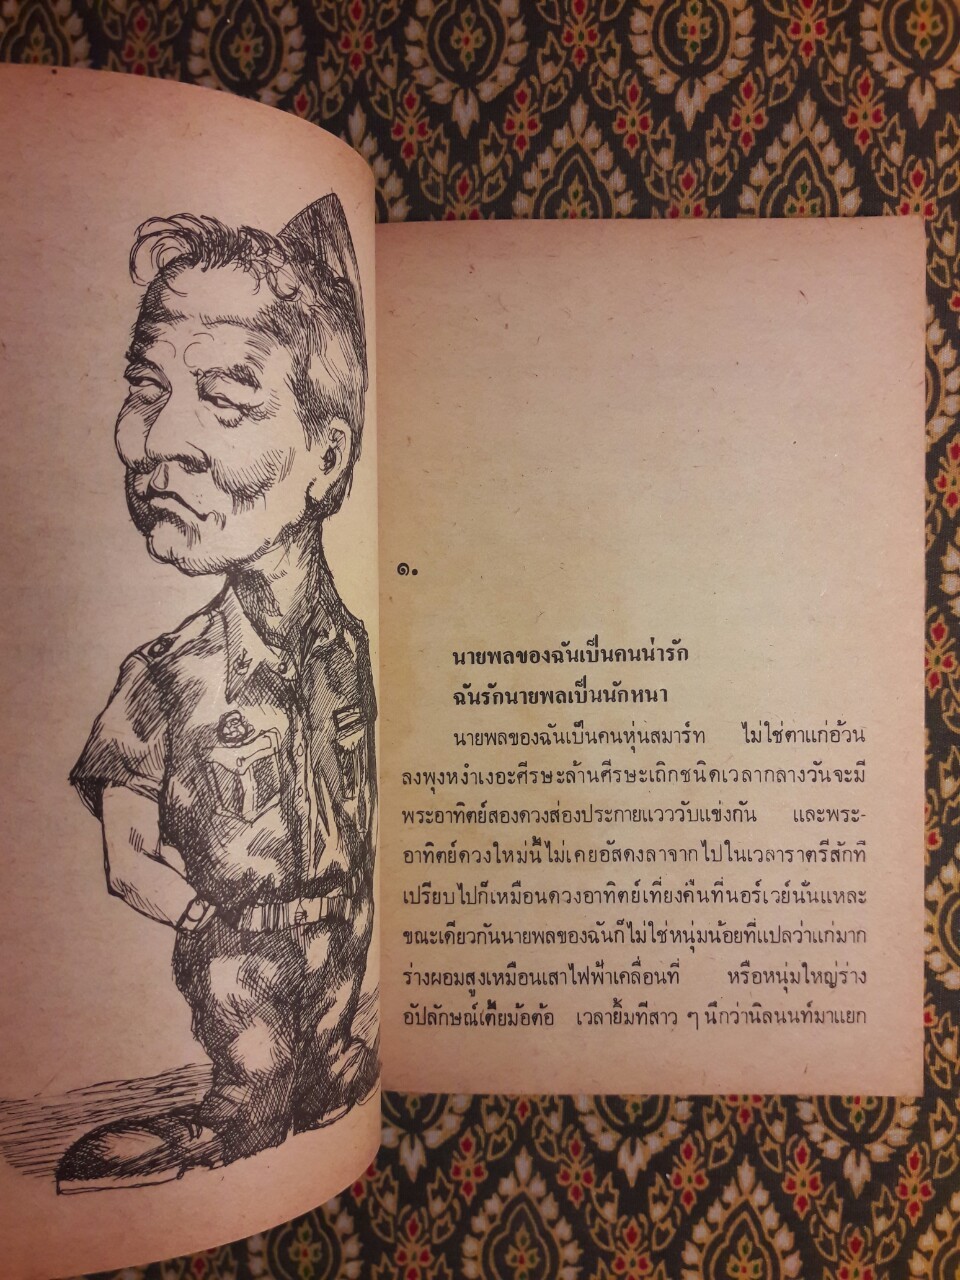 ๑.
นายพลของฉันเป็นคนน่ารัก
ฉันรักนายพลเป็นนักหนา
นายพลของฉันเป็นคนหุ่นสมาร์ท ไม่ใช่ตาแก่อ้วน
ลงพุงหงำเงอะศีรษะล้านศีรษะเถิกชนิดเวลากลางวันจะมี
พระอาทิตย์สองดวงส่องประกายแวววับแข่งกัน และพระ-
อาทิตย์ดวงใหม่นี้ไม่เคยอัสดงลาจากไปในเวลาราตรีสักที
เปรียบไปก็เหมือนดวงอาทิตย์เที่ยงคืนที่นอร์เวย์นั่นแหละ
ขณะเดียวกันนายพลของฉันก็ไม่ใช่หนุ่มน้อยที่แปลว่าแก่มาก
ร่างผอมสูงเหมือนเสาไฟฟ้าเคลื่อนที่ หรือหนุ่มใหญ่ร่าง
อัปลักษณ์เตี้ยม้อต้อ เวลายิ้มทีสาว ๆ นึกว่านิลนนท์มาแยก